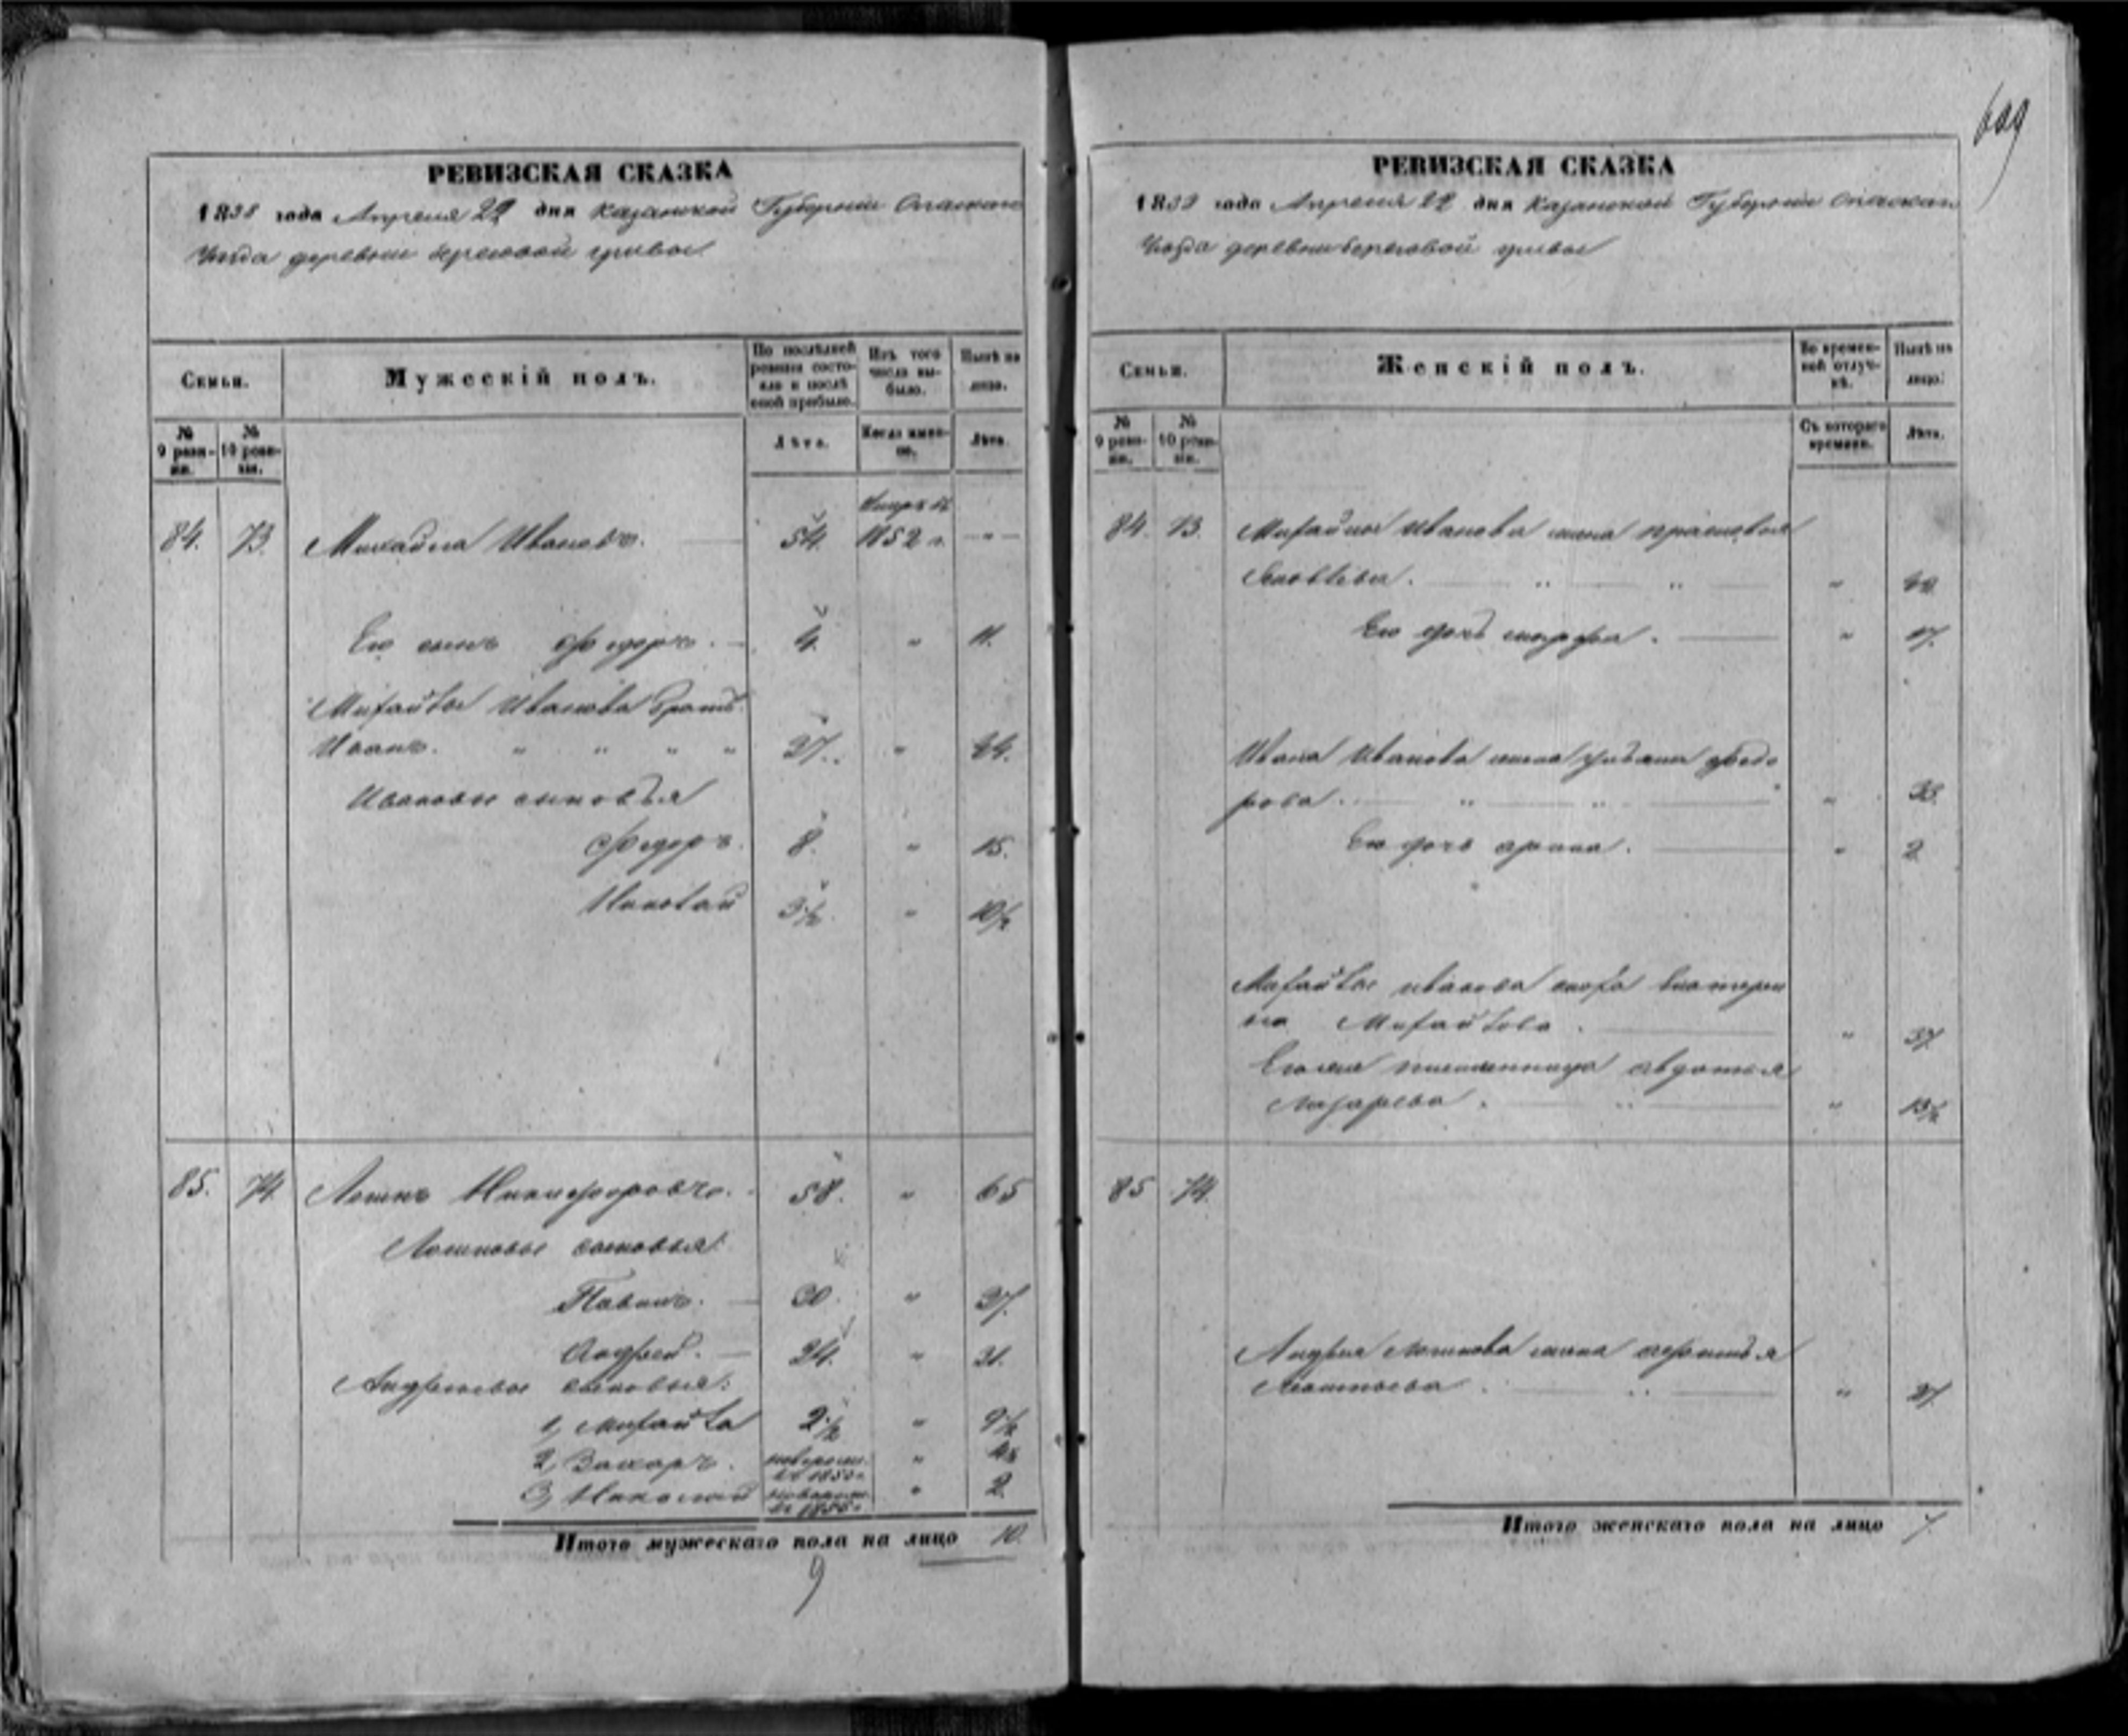 609
РЕВИЗСКАЯ СКАЗКА
1858 года Апреля 22 дня Казанской Губернии Спаскаго
Уѣзда деревни Береговой гривы
Семьи.
Мужескій полъ.
По послѣдней ревизіи состояло и послѣ оной прибыло.
Изъ того числа выбыло.
Нынѣ на лицо.
№ 9 ревизіи.
№ 10 ревизіи.
Лѣта.
Когда именно.
Лѣта.
84. 73. Михайла Ивановъ. 54. 1852 г. -"-
Его сынъ Федоръ. 4. " 11.
Михайлы Иванова братъ
Иванъ. " " " " 37. " 44.
Ивановы сыновья
Федоръ. 8. " 15.
Николай 3½. " 10½
85. 74. Никифоровъ. 58. " 65
сыновья:
Павелъ. 30. " 37.
Андрей. 24. " 31.
Андреевы сыновья:
1, Михайла 2½ " 9½
2, Захаръ. "
3, Николай " 2.
Итого мужескаго пола на лицо 10.
9
РЕВИЗСКАЯ СКАЗКА
1858 года Апреля 22 дня Казанской Губернии Спаскаго
Уѣзда деревни Береговой гривы
Семьи.
Женскій полъ.
Во временной отлучкѣ.
Нынѣ на лицо.
№ 9 ревизіи.
№ 10 ревизіи.
Съ котораго времени.
Лѣта.
84. 73. Михайлы Иванова жена Прасковья
Яковлева. " " "
Его дочь Марфа. " 17.
Ивана Иванова жена Федо
рова. " " "
Его дочь Арина. " 2
Михайлы Иванова сноха Екатери
на Михайлова. " 37.
племянница Авдотья
Лазарева. " " 13½
85 74.
Андрея жена
Леонтьева. " " 27.
Итого женскаго пола на лицо 7